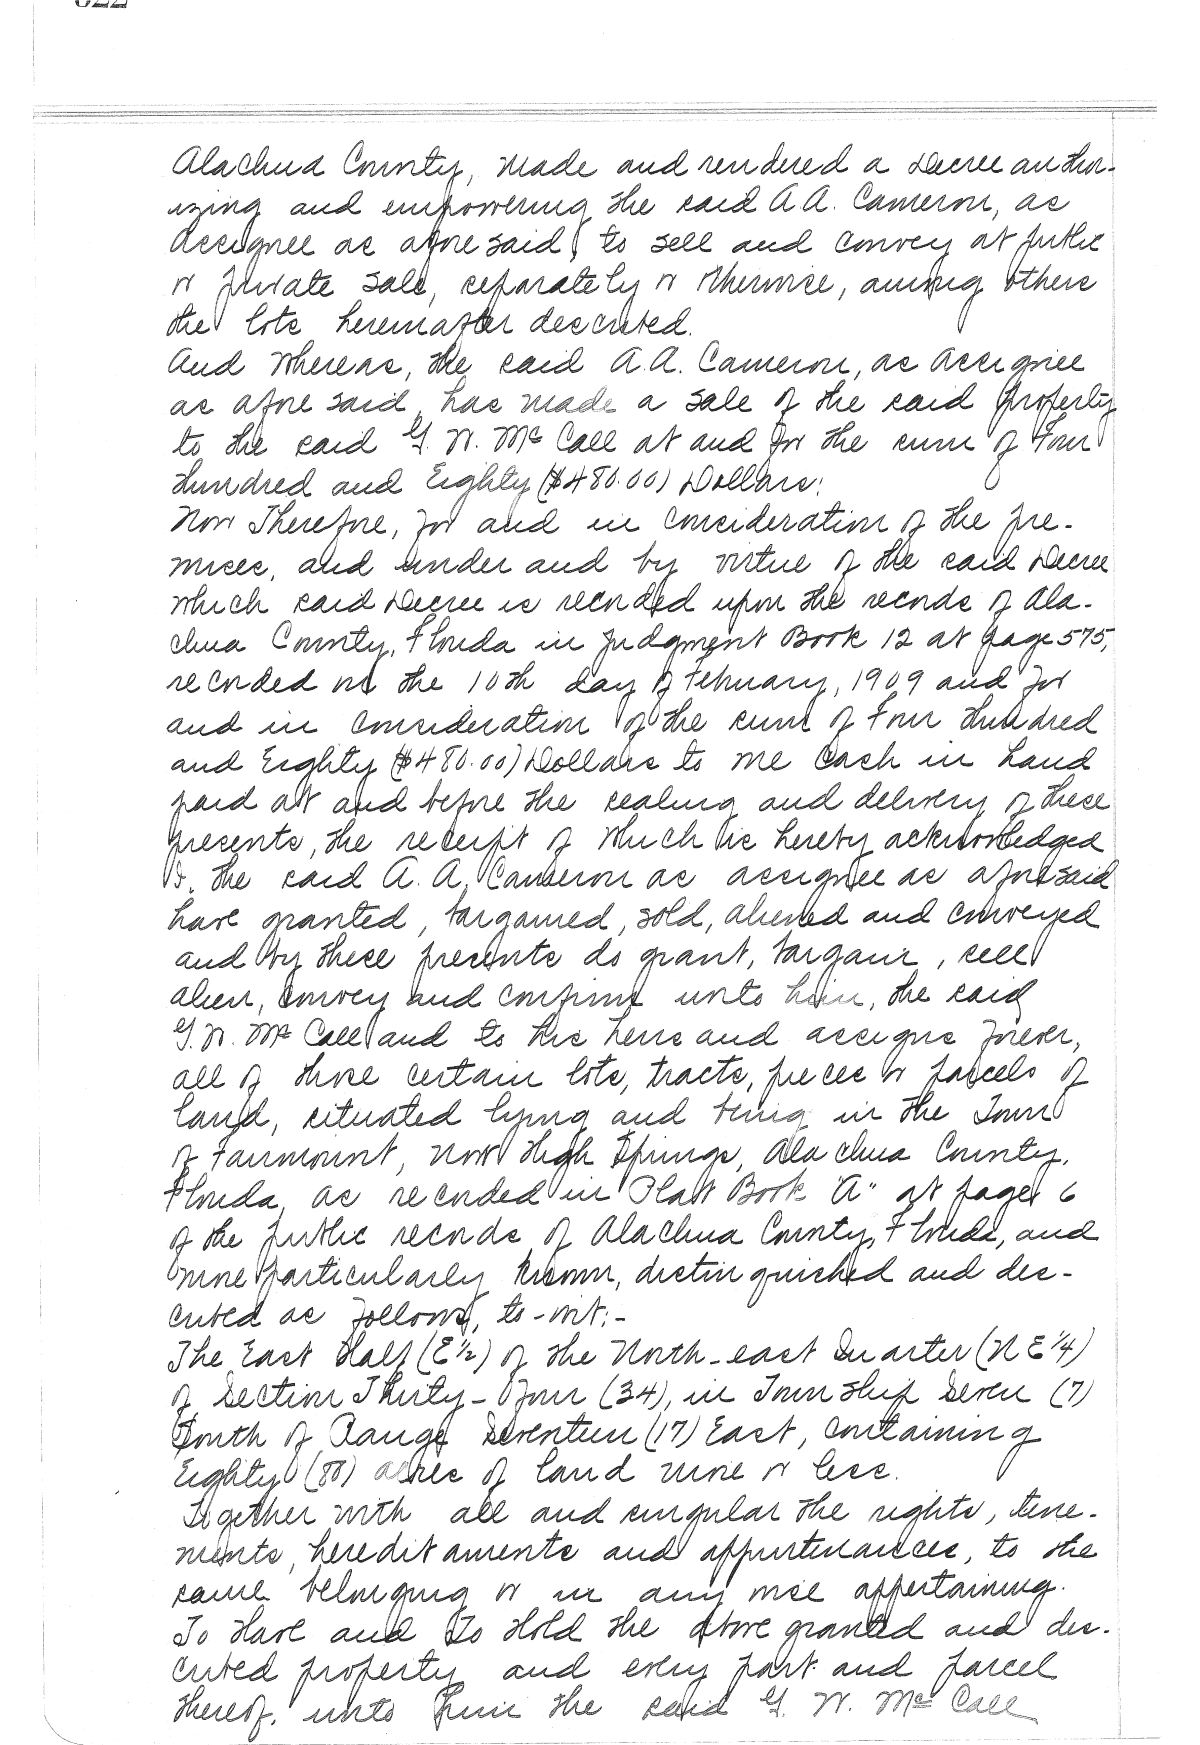 Alachua County, made and rendered a Decree author-
izing and empowering the said A.A. Cameron, as
assignee as afore said, to sell and convey at public
or private sale, separately or otherwise, among others
the lots hereinafter described.
And Whereas, the said A.A. Cameron, as assignee
as afore said, has made a sale of the said property
to the said G. W. McCall at and for the sum of Four
Hundred and Eighty ($480.00) Dollars;
Now Therefore, for and in consideration of the pre-
mises, and under and by virtue of the said Decree
which said Decree is recorded upon the records of Ala-
chua County, Florida in Judgment Book 12 at page 575,
recorded on the 10th day of February, 1909 and for
and in consideration of the sum of Four Hundred
and Eighty ($480.00) Dollars to me cash in hand
paid at and before the sealing and delivery of these
presents, the receipt of which is hereby acknowledged
I, the said A. A. Cameron as assignee as aforesaid
have granted, bargained, sold, aliened and conveyed
and by these presents do grant, bargain, sell
alien, convey and confirm unto him, the said
G. W. McCall and to his heirs and assigns forever,
all of those certain lots, tracts, pieces or parcels of
land, situated lying and being in the Town
of Fairmount, now High Springs, Alachua County,
Florida, as recorded in Plat Book "A" at page 6
of the public records of Alachua County, Florida, and
more particularly known, distinguished and des-
cribed as follows, to-wit:-
The East Half (E½) of the North-east Quarter (NE¼)
of Section Thirty-four (34), in Township Seven (7)
South of Range Seventeen (17) East, containing
Eighty (80) acres of land more or less.
Together with all and singular the rights, tene-
ments, hereditaments and appurtenances, to the
same belonging or in any wise appertaining.
To Have and To Hold the above granted and des-
cribed property and every part and parcel
thereof, unto him the said G. W. McCall